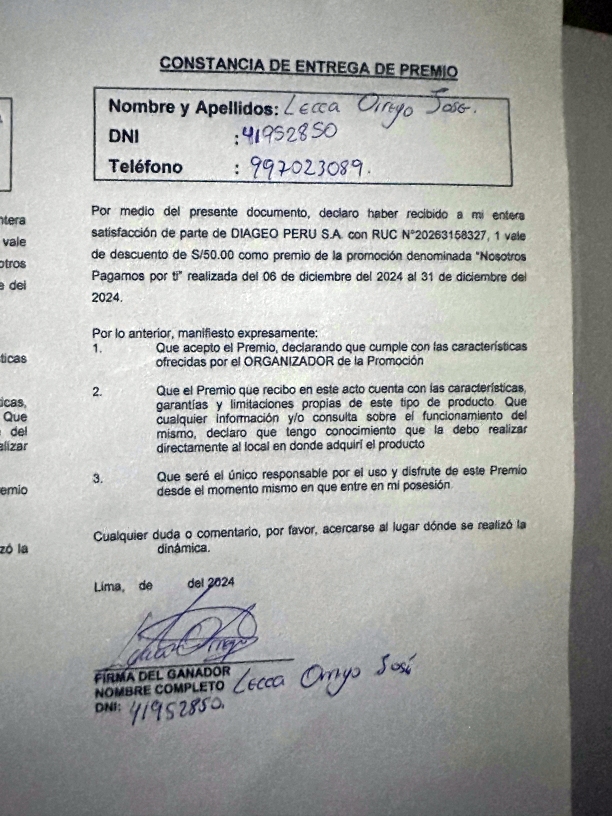 CONSTANCIA DE ENTREGA DE PREMIO
Nombre y Apellidos: Lecca Orrego José.
DNI : 41952850
Teléfono : 997023089.
Por medio del presente documento, declaro haber recibido a mi entera
satisfacción de parte de DIAGEO PERU S.A. con RUC N°20263158327, 1 vale
de descuento de S/50.00 como premio de la promoción denominada "Nosotros
Pagamos por ti" realizada del 06 de diciembre del 2024 al 31 de diciembre del
2024.
Por lo anterior, manifiesto expresamente:
1. Que acepto el Premio, declarando que cumple con las características
ofrecidas por el ORGANIZADOR de la Promoción
2. Que el Premio que recibo en este acto cuenta con las características,
garantías y limitaciones propias de este tipo de producto. Que
cualquier información y/o consulta sobre el funcionamiento del
mismo, declaro que tengo conocimiento que la debo realizar
directamente al local en donde adquirí el producto
3. Que seré el único responsable por el uso y disfrute de este Premio
desde el momento mismo en que entre en mi posesión.
Cualquier duda o comentario, por favor, acercarse al lugar dónde se realizó la
dinámica.
Lima, de del 2024
FIRMA DEL GANADOR
NOMBRE COMPLETO Lecca Orrego José
DNI: 41952850.